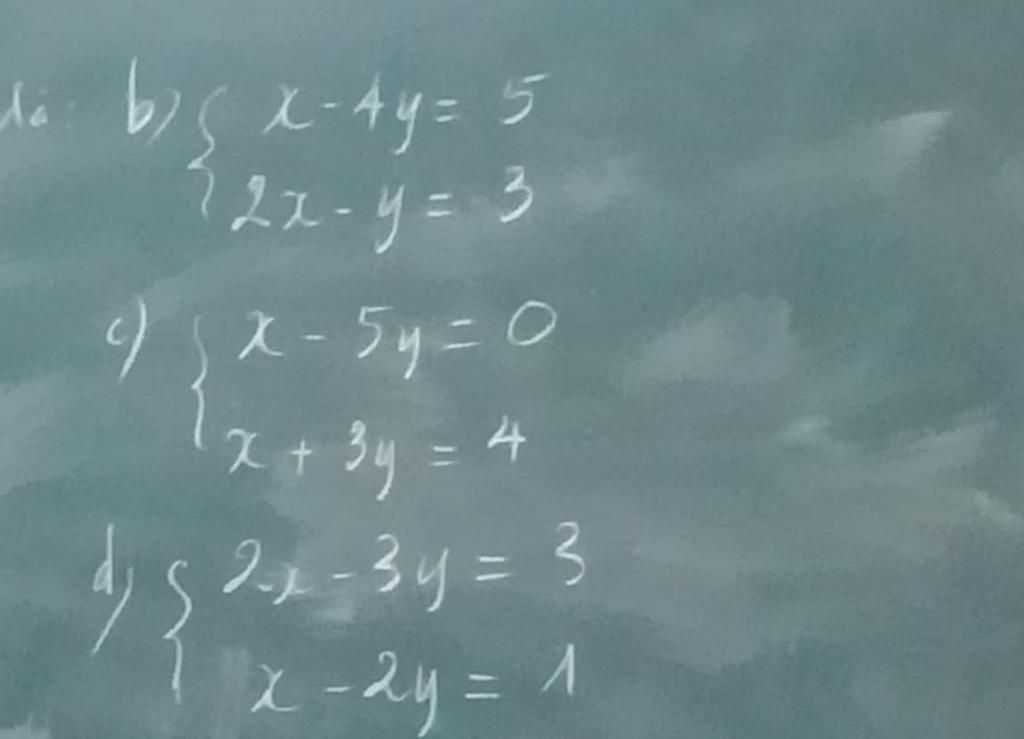 b) { x - 4y = 5
2x - y = 3
c) { x - 5y = 0
x + 3y = 4
d) { 2x - 3y = 3
x - 2y = 1